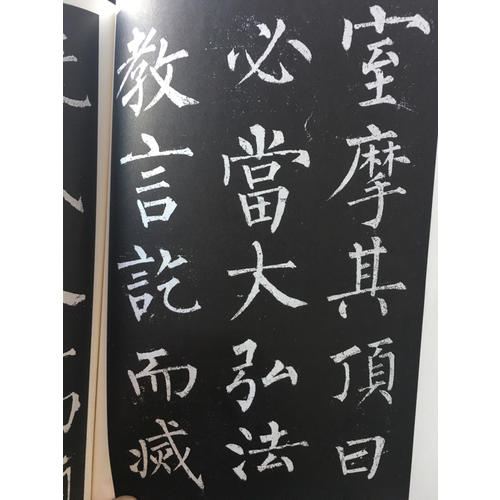 室摩其頂曰
必當大弘法
教言訖而滅